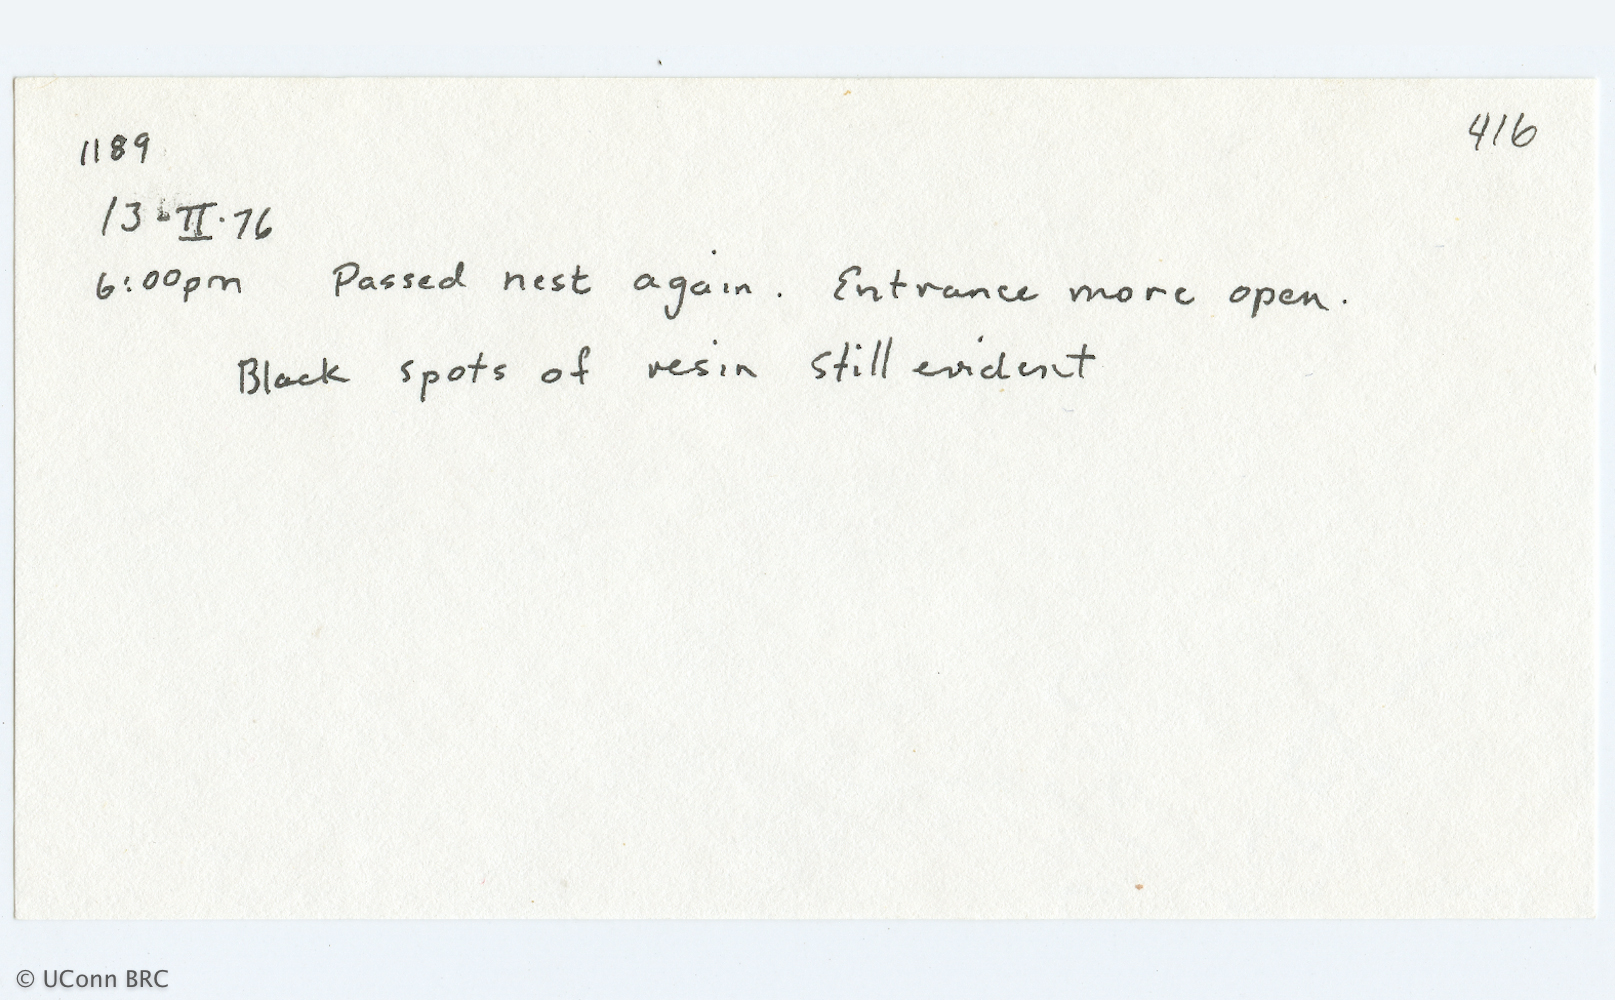 1189
416
13-II-76
6:00pm Passed nest again. Entrance more open.
Black spots of resin still evident
© UConn BRC